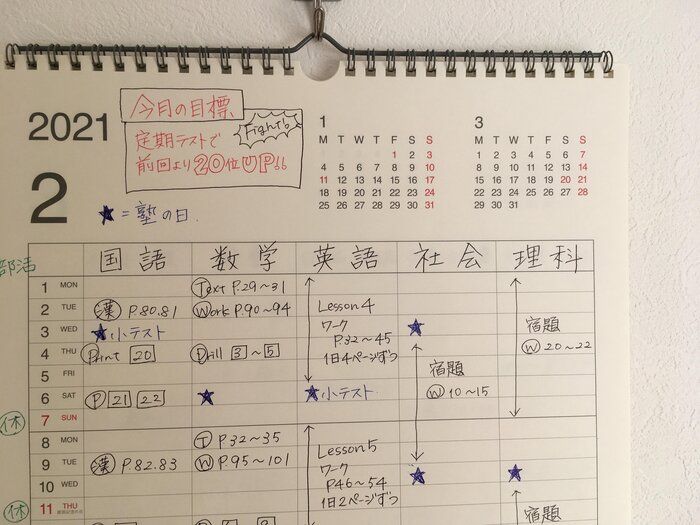 2021
2
今月の目標
Fight!
定期テストで
前回より20位UP!!
★=塾の日.
1
M T W T F S S
1 2 3
4 5 6 7 8 9 10
11 12 13 14 15 16 17
18 19 20 21 22 23 24
25 26 27 28 29 30 31
3
M T W T F S S
1 2 3 4 5 6 7
8 9 10 11 12 13 14
15 16 17 18 19 20 21
22 23 24 25 26 27 28
29 30 31
部活 国語 数学 英語 社会 理科
1 MON Ⓣext P.29~31
2 TUE 漢 P.80.81 Ⓦork P.90~94 Lesson4
3 WED ★小テスト ワーク ★ 宿題
P.32~45
4 THU Ⓟrint 20 Ⓓrill 3~5 1日4ページずつ Ⓦ 20~22
5 FRI 宿題
6 SAT Ⓟ 21 22 ★ ★小テスト Ⓦ 10~15
休 7 SUN
8 MON Ⓣ P.32~35 Lesson5
9 TUE 漢 P.82.83 Ⓦ P.95~101 ワーク
P46~54 ★ ★
10 WED 1日2ページずつ
休 11 THU 宿題